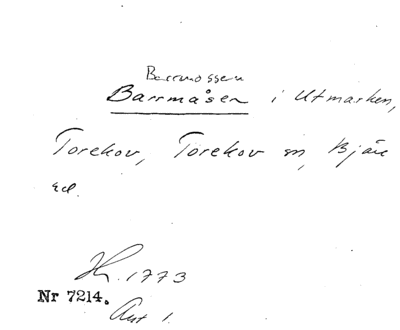 Barrmossen
Barrmåsen i Utmarken,
Torekov, Torekov sn, Bjäre
hd.
1773
Nr 7214.
Avt 1.